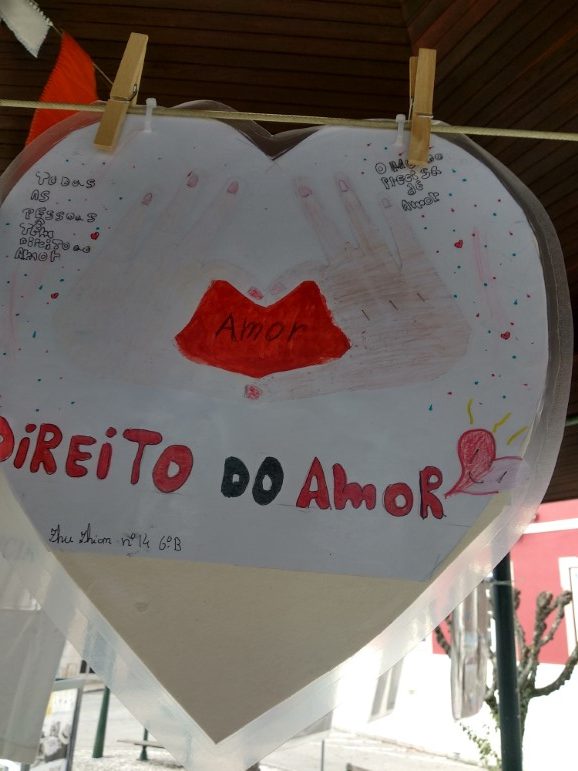 TODAS
AS
PESSOAS
TÊM
DIREITO AO
AMOR
O MUNDO
PRECISA
DE
AMOR
Amor
DIREITO DO AMOR
nº14 6ºB